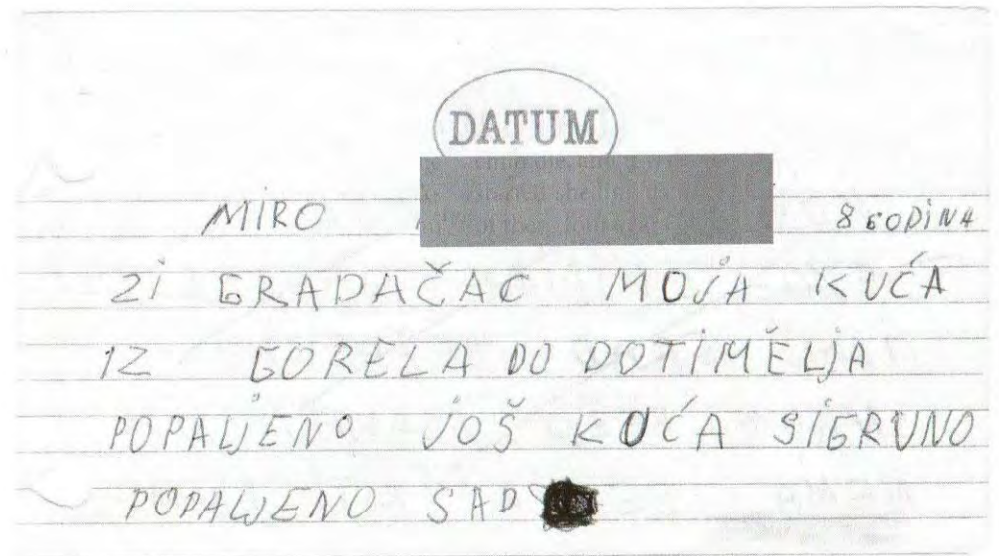 DATUM
MIRO 8 GODINA
ZI GRADAČAC MOJA KUĆA
IZ GORELA DO DOTIMELJA
POPALJENO JOŠ KUĆA SIGRUNO
POPALJENO SAD